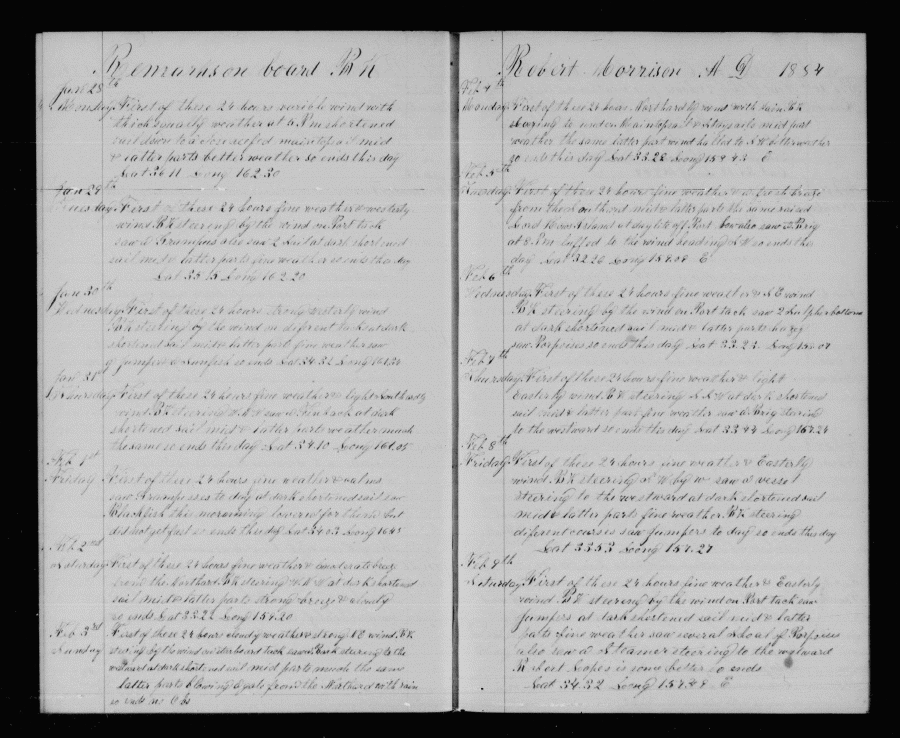 Remarks on board Bk
Jan 28th
Monday First of these 24 hours varible wind with
thick squally weather at 6 Pm shortened
sail down to a close reefed maintopsail mid
& latter parts better weather so ends this day
Lat 36 11 Long 162.30
Jan 29th
Tuesday First of these 24 hours fine weather & westerly
wind Bk steering by the wind on Port tack
saw Grampus also saw 2 Sail at dark shortened
sail mid & latter parts fine weather so ends this day
Lat 35 15 Long 162.20
Jan 30th
Wednesday First of these 24 hours strong westerly wind
Bk steering by the wind on diferent tacks at dark
shortened sail mid & latter parts fine weather saw
jumpers & Sunfish so ends Lat 34.32 Long
Jan 31st
Thursday First of these 24 hours fine weather & light Southardly
wind Bk steering saw at dark
shortened sail mid & latter parts weather much
the same so ends this day Lat 34 10 Long 161.05
Feb 1st
Friday First of these 24 hours fine weather & calms
saw Grampuses to day at dark shortened sail saw
Blackfish this morning lowered for them but
did not get fast so ends this day Lat 34 03 Long
Feb 2nd
Saturday First of these 24 hours fine weather & moderate breeze
from the Northard Bk steering at dark shortened
sail mid & latter parts strong breeze & cloudy
so ends Lat 33.22 Long 159.20
Feb 3rd
Sunday First of these 24 hours cloudy weather & strong wind Bk
steering by the wind on starboard tack saw Bark steering to the
westward at dark shortened sail mid parts much the same
latter parts blowing a gale from the Northard with rain
so ends no Obs
Robert Morrison M D 1884
Feb 4th
Monday First of these 24 hours Northardly wind with rain Bk
steering by wind on maintopsail & staysails mid part
weather the same latter part wind hailed to N W better weather
so ends this day Lat 33.22 Long 158 43 E
Feb 5th
Tuesday First of these 24 hours fine weather & a fresh breeze
from the Northard mid & latter parts the same raised
Lord Hows Island at daylite off Port bow also saw a Brig
at 8 Pm luffed to the wind heading so ends this
day Lat 32 26 Long 159.08 E
Feb 6th
Wednesday First of these 24 hours fine weather & N E wind
Bk steering by the wind on Port tack saw 2 Sulpherbottoms
at dark shortened sail mid & latter parts hazy
saw Porpoises so ends this day Lat 33.23 Long
Feb 7th
Thursday First of these 24 hours fine weather & light
Easterly wind Bk steering at dark shortened
sail mid & latter part fine weather saw a Brig steering
to the westward so ends this day Lat 33 44 Long 157.24
Feb 8th
Friday First of these 24 hours fine weather & Easterly
wind Bk steering by saw a vessel
steering to the westward at dark shortened sail
mid & latter parts fine weather Bk steering
diferent courses saw jumpers to day so ends this day
Lat 33 53 Long 157.27
Feb 9th
Saturday First of these 24 hours fine weather & Easterly
wind Bk steering by the wind on Port tack saw
jumpers at dark shortened sail mid & latter
parts fine weather saw several shoal of Porpoises
also saw a Steamer steering to the
Robert Lopes is some better so ends
Lat 34 32 Long 157.48 E